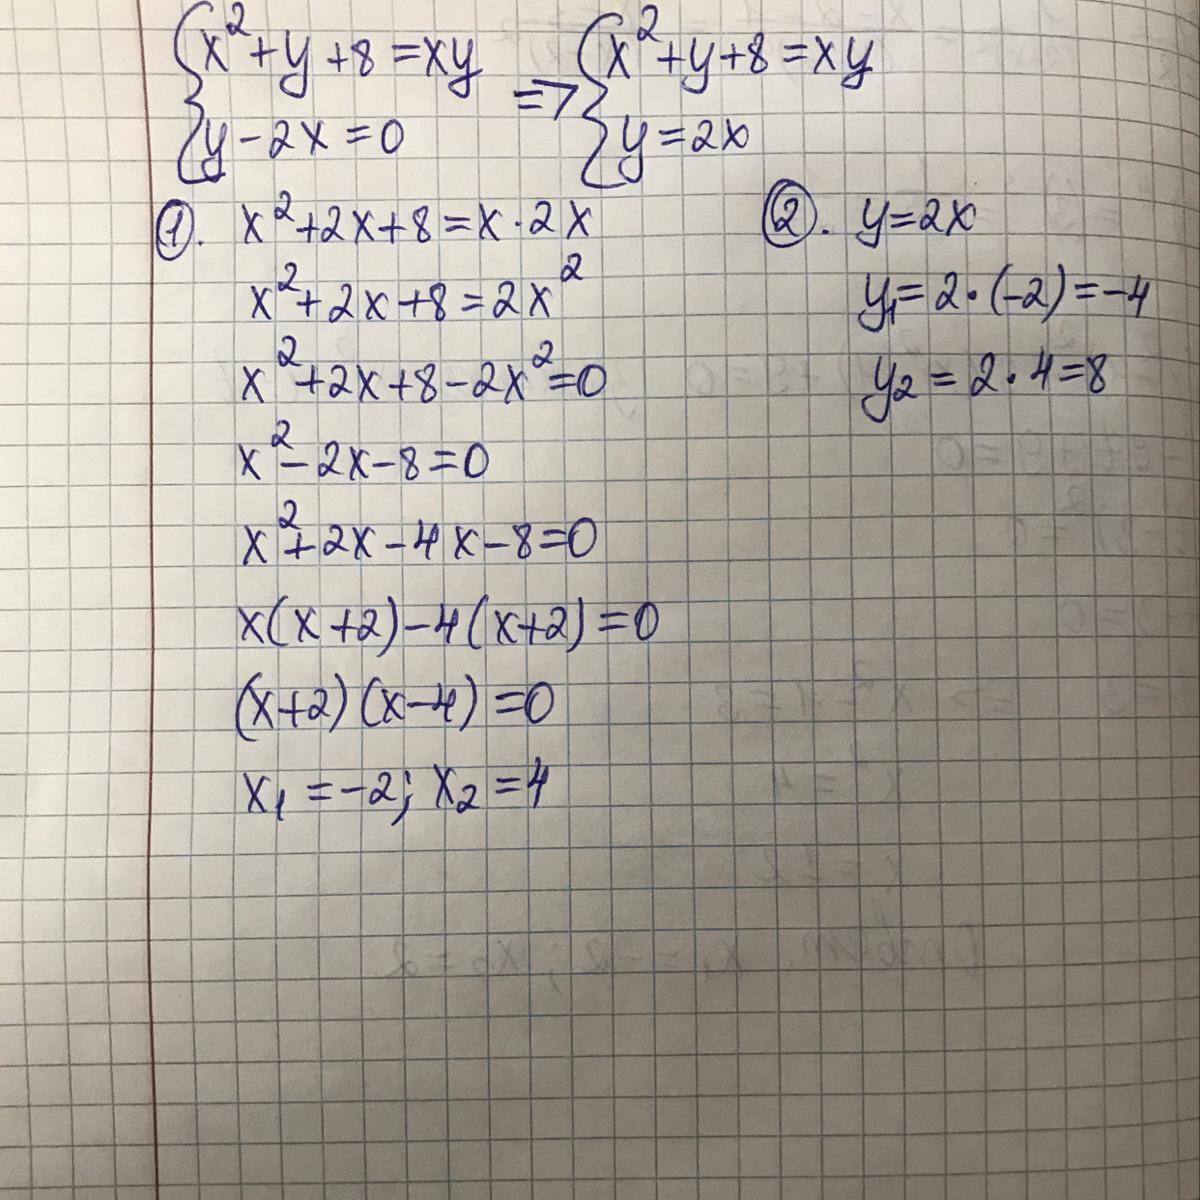 x²+y+8=xy => x²+y+8=xy
y-2x=0 y=2x
1. x²+2x+8=x·2x
x²+2x+8=2x²
x²+2x+8-2x²=0
x²-2x-8=0
x²+2x-4x-8=0
x(x+2)-4(x+2)=0
(x+2)(x-4)=0
x₁=-2; x₂=4
2. y=2x
y₁=2·(-2)=-4
y₂=2·4=8